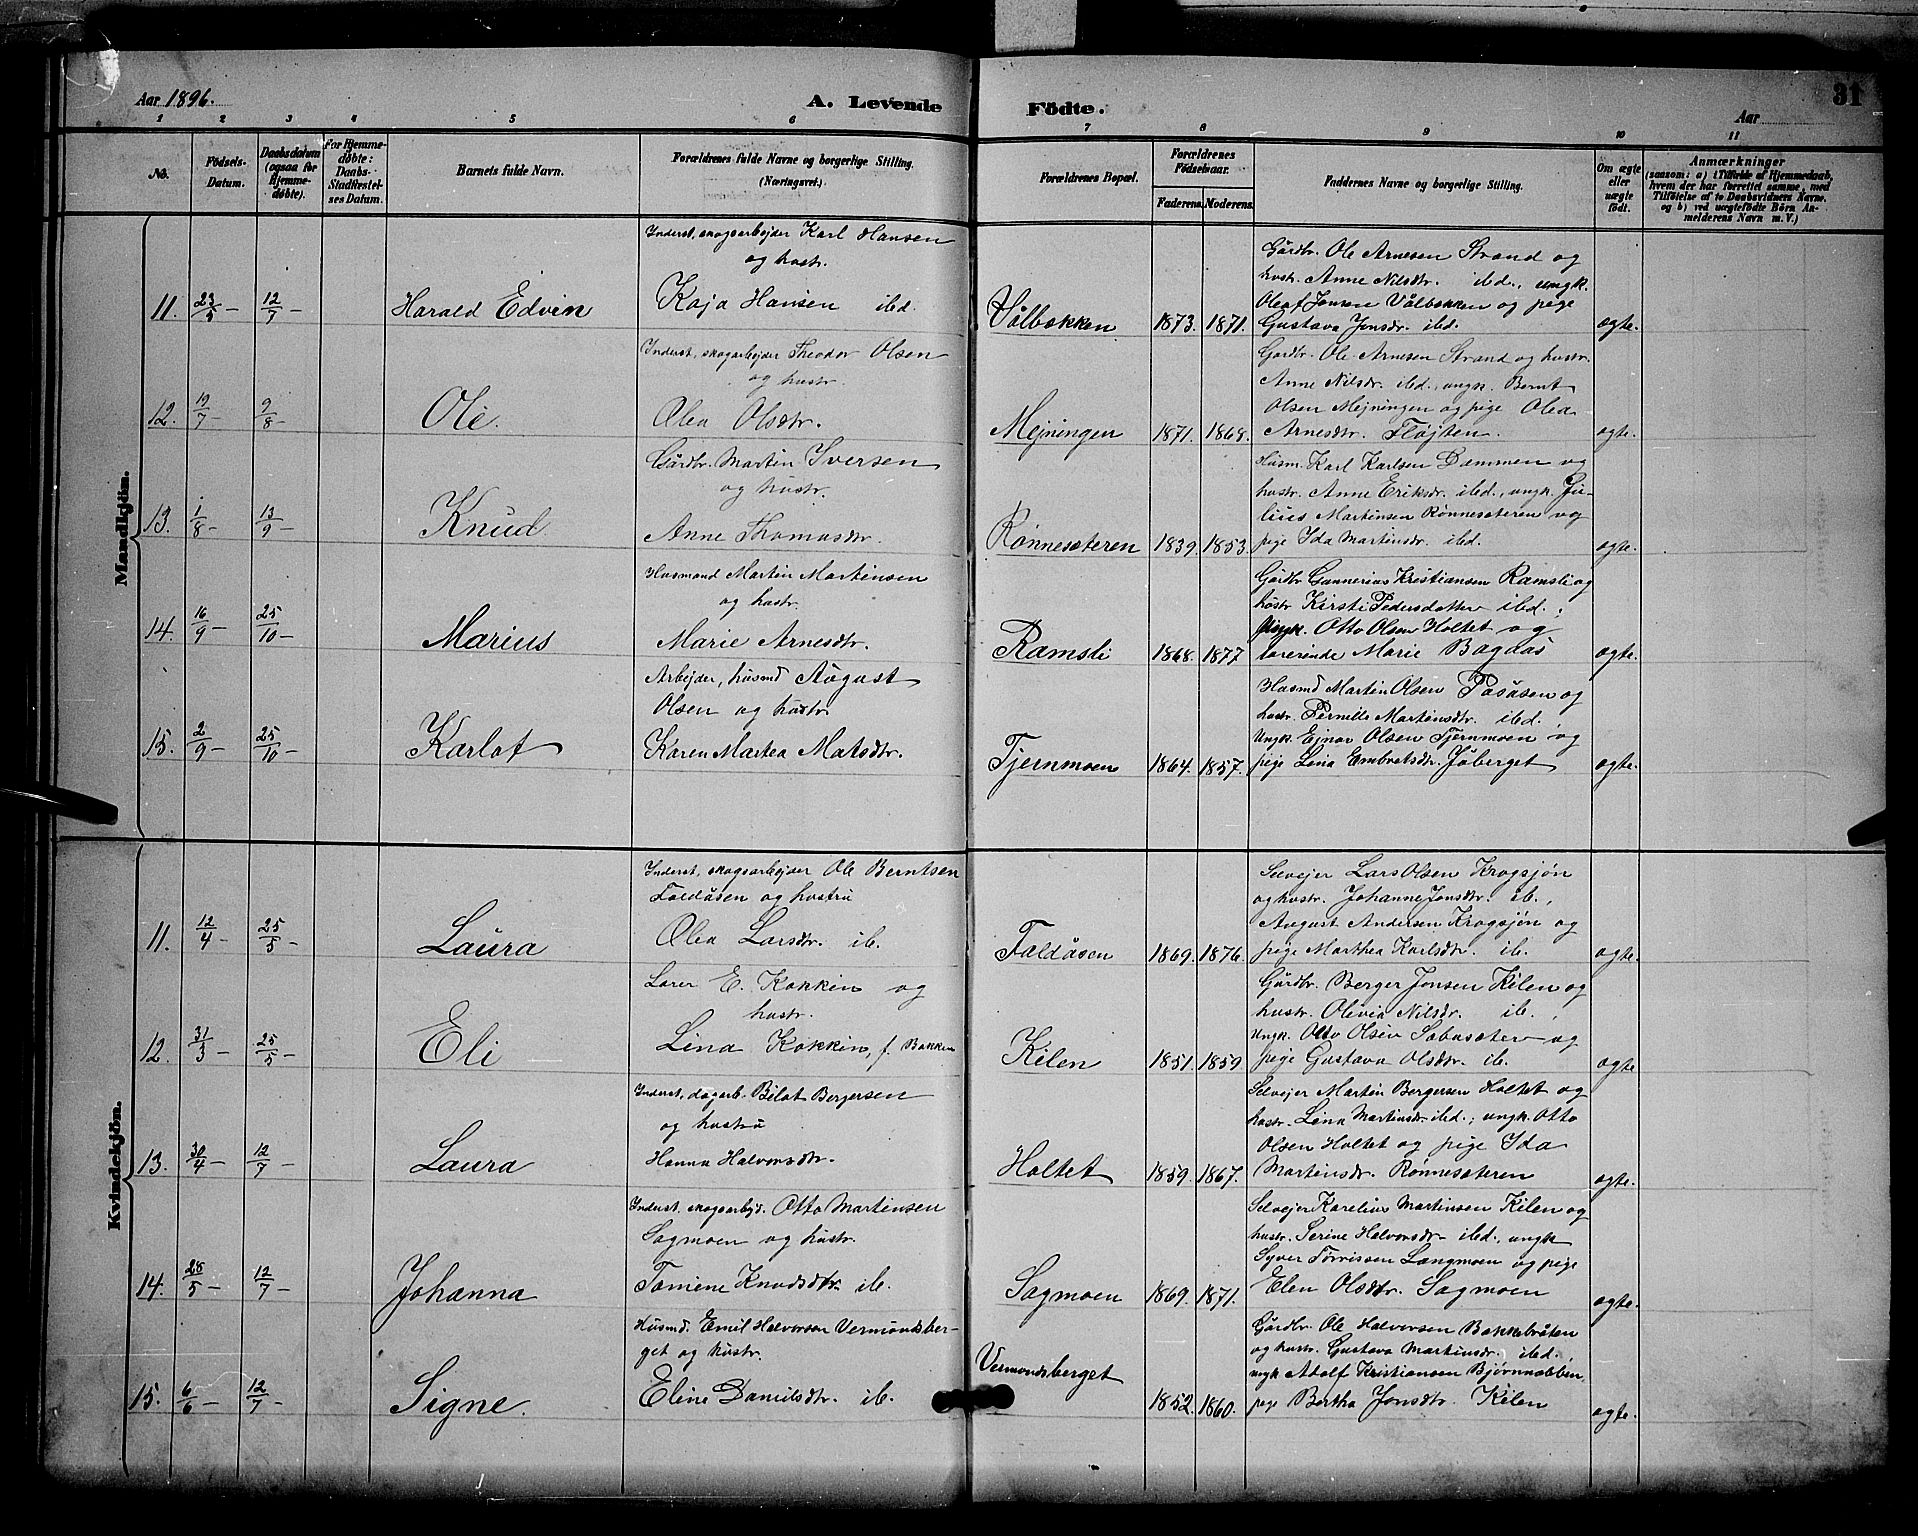 Aar 1896. A. Levende Födte. Aar 31
1 2 3 4 5 6 7 8 9 10 11
No. Födsels-Datum. Daabsdatum (ogsaa for Hjemmedøbte). For Hjemmedøbte: Daabs-Stadfæstelses Datum. Barnets fulde Navn. Forældrenes fulde Navne og borgerlige Stilling. (Næringsvei.) Forældrenes Bopæl. Forældrenes Födselsaar. Faderens. Moderens. Faddernes Navne og borgerlige Stilling. Om ægte eller uægte født. Anmærkninger (saasom: a) i Tilfælde af Hjemmedaab, hvem der har forrettet samme, med Tilføielse af to Daabsvidners Navne, og b) ved uægtefødte Börn Anmelderens Navn m. V.)
Mandkjön.
Inderst, skogsarbejder Karl Hansen
og hustr.
11. 23/5 – 12/7 – Harald Edvin Kaja Hansen ibd. Vålbækken 1873. 1871. ægte.
Gårdbr. Ole Arnesen Strand og
hustr. Anne Nilsdr. ibd., ungk.
Olaf Jonsen Vålbækken og pige
Gustava Jonsdr. ibd.
Inderst, skogarbejder Theodor Olsen
og hustr.
12. 19/7 – 9/8 – Ole. Olea Olsdtr. Mejningen 1871. 1868. ægte.
Gårdbr. Ole Arnesen Strand og hustr.
Anne Nilsdr. ibd., ungk. Bernt
Olsen Mejningen og pige Olea
Arnesdtr. Fløjten.
Gårdbr. Martin Iversen
og hustr.
13. 1/8 – 13/9 – Knud Anne Thomasdtr. Rønnesæteren 1839. 1853. ægte.
Husm. Karl Karlsen Dammen og
hustr. Anne Eriksdr. ibd., ungk. Ju-
lius Martinsen Rønnesæteren og
pige Ida Martinsdr. ibd.
Husmand Martin Martinsen
og hustr.
14. 16/9 – 25/10 – Marius Marie Arnesdtr. Ramsli 1868. 1877 ægte.
Gårdbr Gunnerius Kristiansen Ramsli og
hustr Kirsti Pedersdatter ibd.;
ungk. Otto Olsen Holtet og
lærerinde Marie Bagaas
Arbejder, husmd August
Olsen og hustr
15. 2/9 – 25/10 – Karlot Karen Martea Matsdtr. Tjernmoen 1864. 1857. ægte.
Husmd Martin Olsen Påsåsen og
hustr. Pernille Martinsdtr. ibd.
Ungk. Ejnar Olsen Tjernmoen og
pige Lina Embretsdtr. Jøberget
Kvindekjön.
Inderst, skogsarbejder Ole Berntsen
Faldåsen og hustru
11. 12/4 – 25/5 – Laura Olea Larsdtr. ib. Faldåsen 1869. 1876. ægte.
Selvejer Lars Olsen Krogsjøn
og hustr. Johanne Jonsdtr. ib.,
August Andersen Krogsjøn og
pige Marthea Karlsdtr. ib.
Lærer E. Kokkin og
hustr.
12. 31/3 – 25/5 – Eli Lina Kokkin, f. Bakken Kilen 1851. 1859 ægte
Gårdbr. Berger Jonsen Kilen og
hustr. Olivia Nilsdr. ib.,
Ungk. Otto Olsen Sæbusæter og
pige Gustava Olsdtr. ib.
Inderst, dagarb. Bilat Bergersen
og hustru
13. 30/4 – 12/7 – Laura Hanna Halvorsdtr. Holtet 1859. 1867. ægte.
Selvejer Martin Bergersen Holtet og
hustr. Lina Martinsdtr. ibd.; ungk. Otto
Olsen Holtet og pige Ida
Martinsdr. Rønnesæteren
Inderst. skogsarbjd. Otto Martinsen
Sagmoen og hustr.
14. 28/5 – 12/7 – Johanna Tomine Knudsdtr. ib. Sagmoen 1869. 1871. ægte.
Selvejer Karelius Martinsen Kilen og
hustr. Serine Halvorsdr– ibd., ungk
Syver Tørrissen Langmoen og pige
Elen Olsdtr. Sagmoen
Husmd. Emil Halvorsen Vermundsber-
get og hustr.
15. 6/6 – 12/7 – Signe. Eline Danielsdtr. ib. Vermundsberget 1852. 1860. ægte.
Gårdbr. Ole Halvorsen Bakkebråten
og hustr. Gustava Martinsdr. ibd.,
ungk Adolf Kristiansen Bjørnnabben,
pige Bertha Jonsdtr Kilen